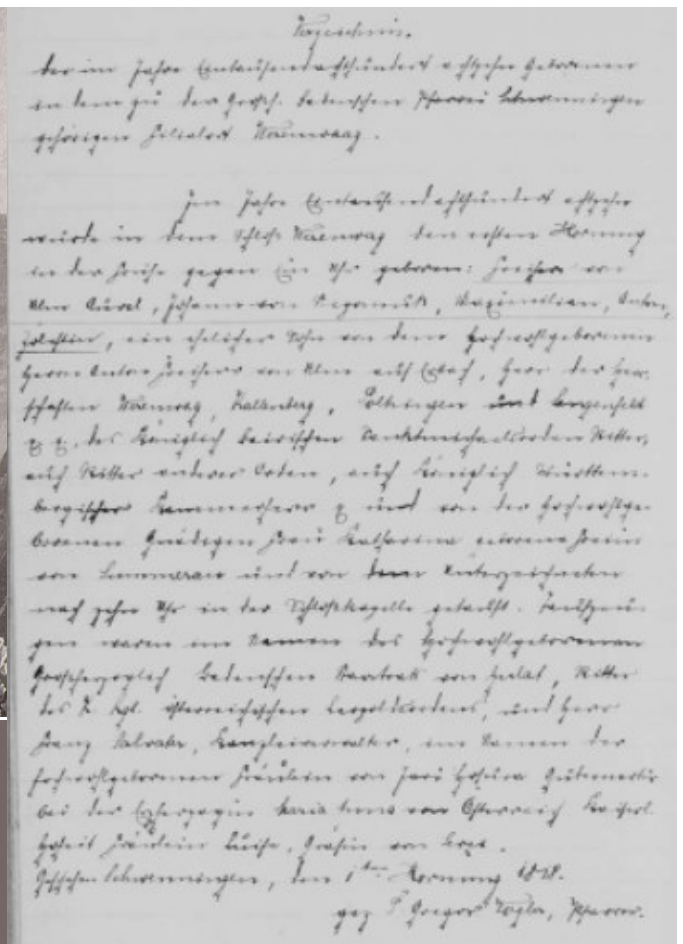 Verzeichnis.
der im Jahre Eintausendachthundert achtzehn Geborenen
in dem zu der Grosh. badenschen Pfarrei Schwenningen
gehörigen Filialort Werenwaag.
Im Jahre Eintausendachthundert achtzehn
wurde in dem Schloss Werenwag den ersten Hornung
in der Frühe gegen Ein Uhr geboren: Freiherr von
Ulm Aurel, Johann von Nepomuk, Maximilian, Anton,
ein ehelicher Sohn von dem Hochwohlgeborenen
Herrn Anton Freiherr von Ulm auf Erbach, Herr der Herr-
schaften Werenwag, Kallenberg, Poltringen und
des Königlich bairischen Sanktmichaelsorden Ritter,
auch Ritter anderer Orden, auch Königlich Württem-
bergischer Kammerherr und von der Hochwohlge-
borenen Gnädigen Frau Katharina geborene Freiin
von und von dem Unterzeichneten
nach zehn Uhr in der Schlosskapelle getauft. Taufzeu-
gen waren im Namen des Hochwohlgeborenen
Grossherzoglich badenschen Staatsrath von Ritter
des K. kgl. österreichischen Leopoldordens, und Herr
Franz Kanzleiverwalter, im Namen der
Hochwohlgeborenen Fräulein von
bei der Erzherzogin Maria von Österreich Kaiserl.
Hoheit Fräulein Luise, Gräfin von
Geschehen Schwenningen, den 1ten Hornung 1818.
gez P. Gregor Pfarrer.